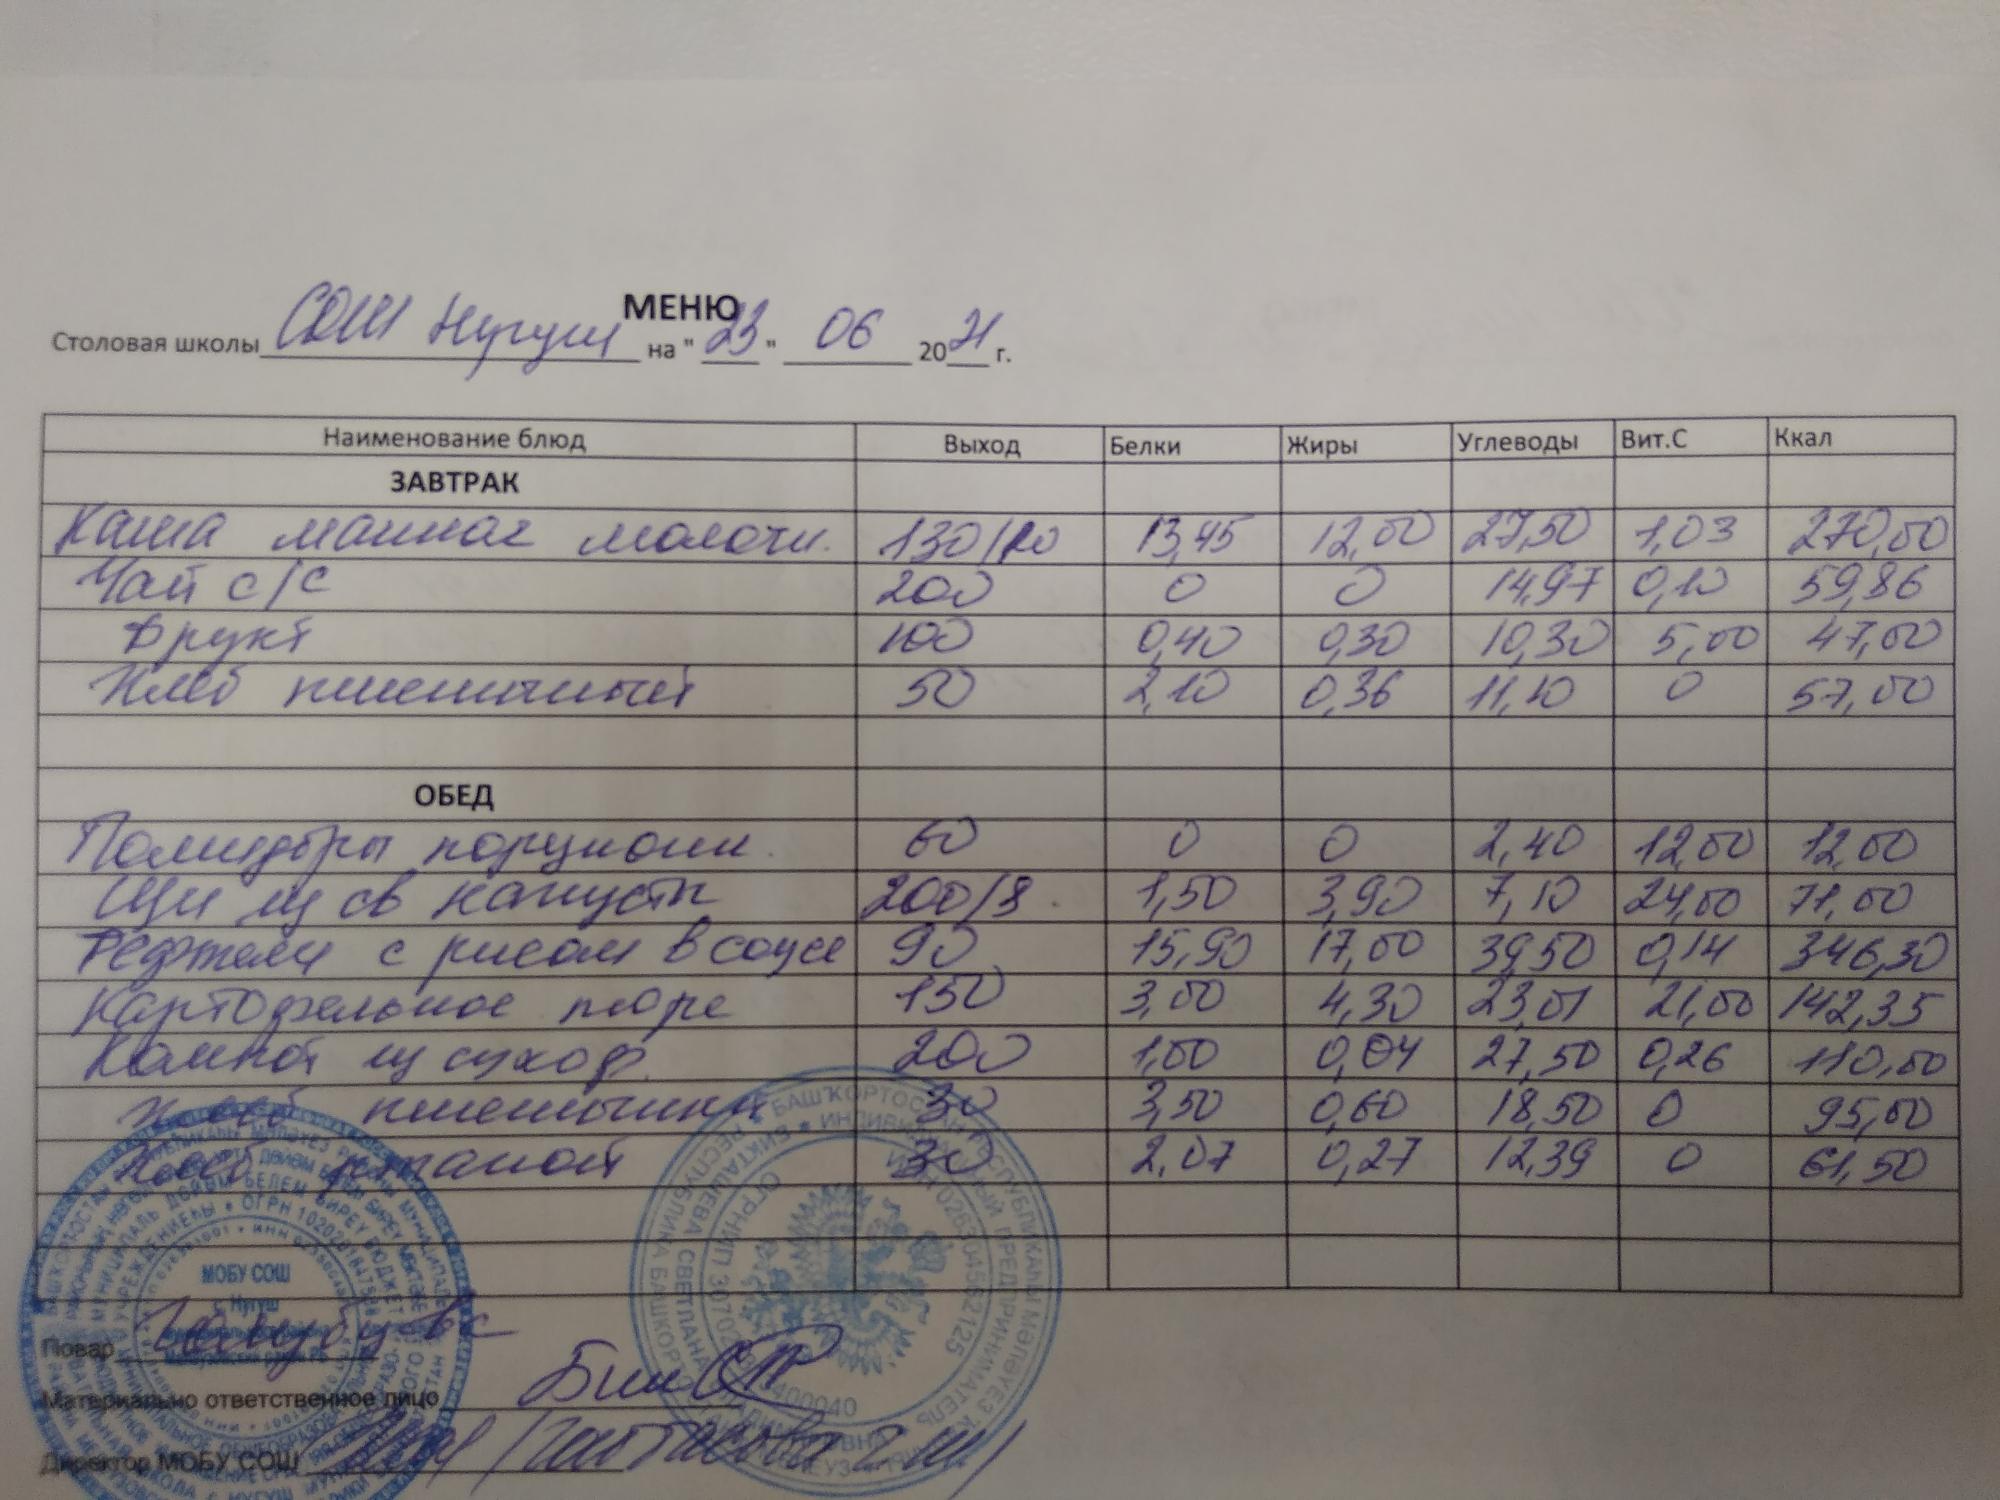 МЕНЮ
Столовая школы СОШ Нугуш на " 23 " 06 2021 г.
Наименование блюд Выход Белки Жиры Углеводы Вит.С Ккал
ЗАВТРАК
Каша манная молочн. 130/20 13,45 12,00 27,50 1,03 270,00
Чай с/с 200 0 0 14,97 0,10 59,86
Фрукт 100 0,40 0,30 10,30 5,00 47,00
Хлеб пшеничный 50 2,10 0,36 11,10 0 57,00
ОБЕД
Помидоры порционн. 60 0 0 2,40 12,00 12,00
Щи из св капусты 200/8 1,50 3,90 7,10 24,00 71,00
Тефтели с рисом в соусе 90 15,90 17,00 39,50 0,14 346,30
Картофельное пюре 150 3,00 4,30 23,01 21,00 142,35
Компот из сухоф. 200 1,00 0,04 27,50 0,26 110,00
Хлеб пшеничн 30 3,50 0,60 18,50 0 95,00
Хлеб ржаной 30 2,07 0,27 12,39 0 61,50
МОБУ СОШ
с. Нугуш
Повар
Материально ответственное лицо
Директор МОБУ СОШ